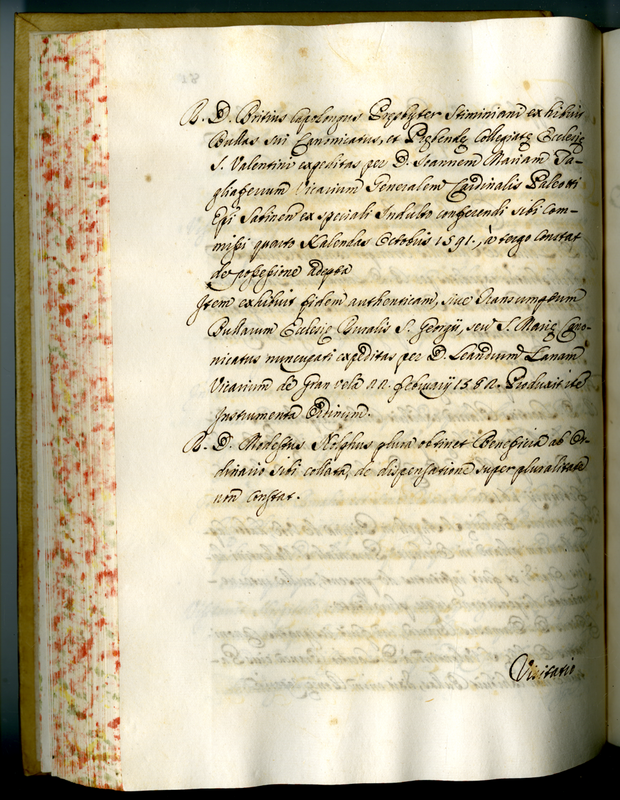 R. D. Britius Capolongus Presbyter Stiminiani exhibuit
Bullas sui Canonicatus, et Prębendę Collegiatę Ecclesię
S. Valentini expeditas per D. Joannem Mariam Ta-
gliaferrum Vicarium Generalem Cardinalis Paleotti
Epi Sabinen ex speciali Indulto conferendi sibi com-
missi quarto Kalendas Octobris 1591., à tergo constat
de possessione adepta
Item exhibuit fidem authenticam, sive Transumptum
Bullarum Ecclesię Ruralis S. Georgij, seu S. Marię Cano-
nicatus nuncupati expeditas per D. Leandrum Lanam
Vicarium de februarij 1582. Produxit
Instrumenta Ordinum.
R. D. Modestus plura obtinet Beneficia ab Or-
dinario sibi collata, de dispensatione super pluralitate
non constat.
Visitatio